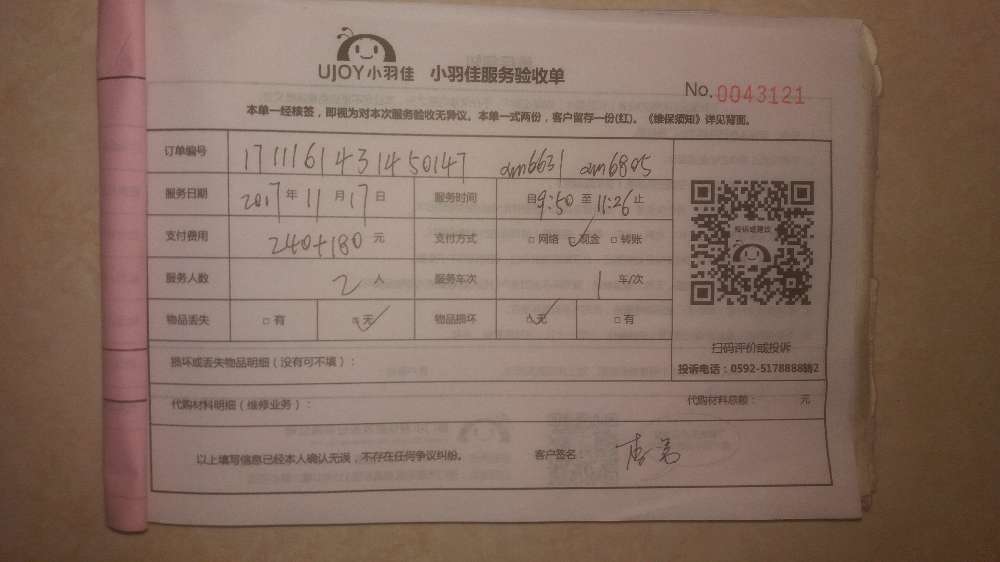 UJOY小羽佳 小羽佳服务验收单
No.0043121
本单一经核签，即视为对本次服务验收无异议。本单一式两份，客户留存一份(红)。《维保须知》详见背面。
订单编号 1711161431450147 am6631 am6805
服务日期 2017年11月17日 服务时间 自9:50至11:26止
支付费用 240+180元 支付方式 □网络 ☑现金 □转账
服务人数 2人 服务车次 1车/次
物品丢失 □有 ☑无 物品损坏 ☑无 □有
投诉或建议
扫码评价或投诉
投诉电话：0592-5178888转2
损坏或丢失物品明细（没有可不填）：
代购材料明细（维修业务）： 代购材料总额： 元
以上填写信息已经本人确认无误，不存在任何争议纠纷。 客户签名：